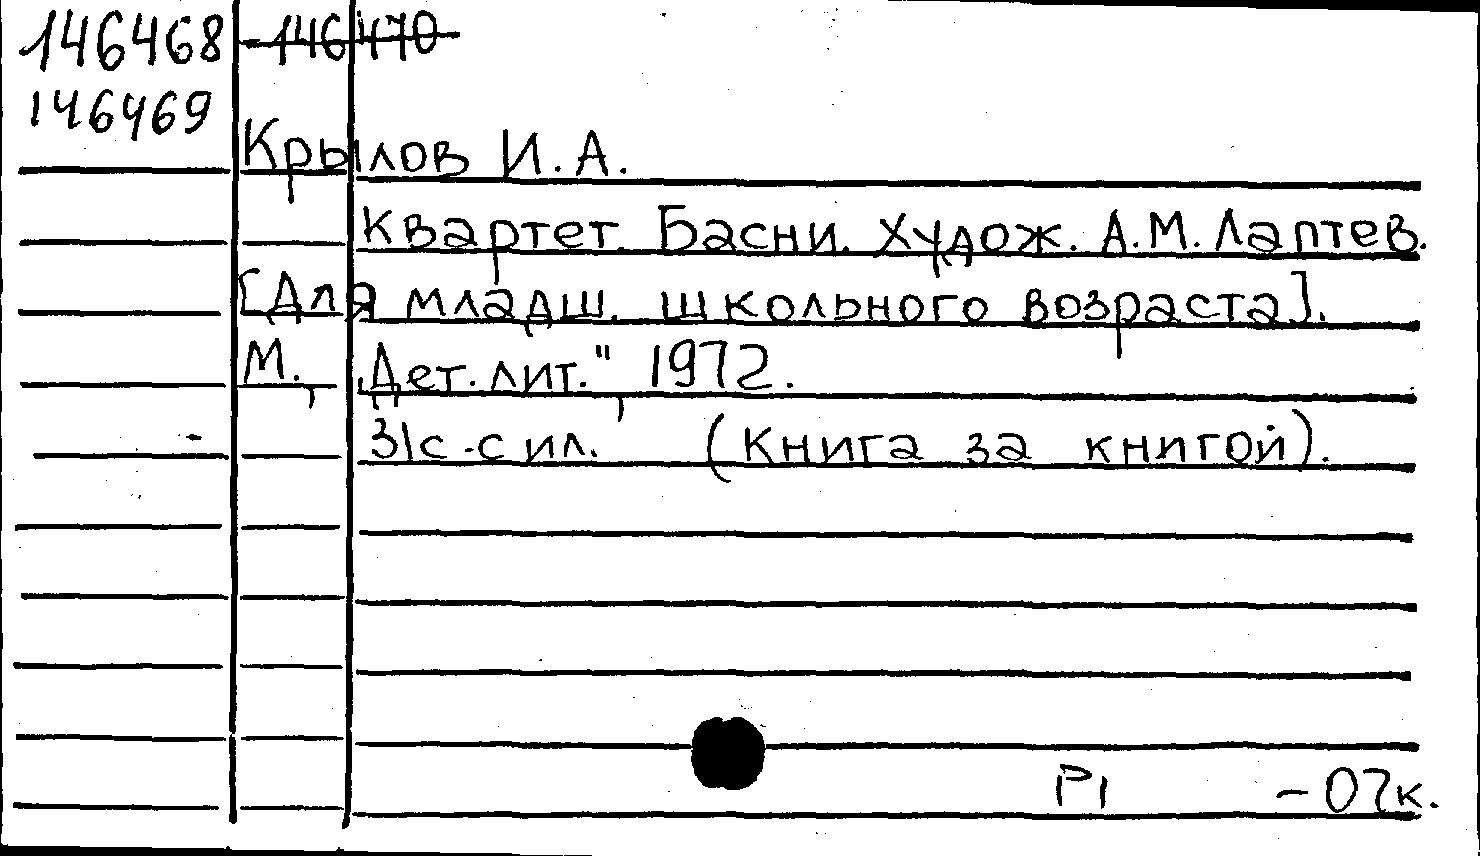 146468 -146470
146469
Крылов И.А.
Квартет. Басни. Худож. А.М. Лаптев.
[Для младш. школьного возраста].
М., „Дет. лит.", 1972.
31с. с ил. (Книга за книгой).
Р1 -07к.